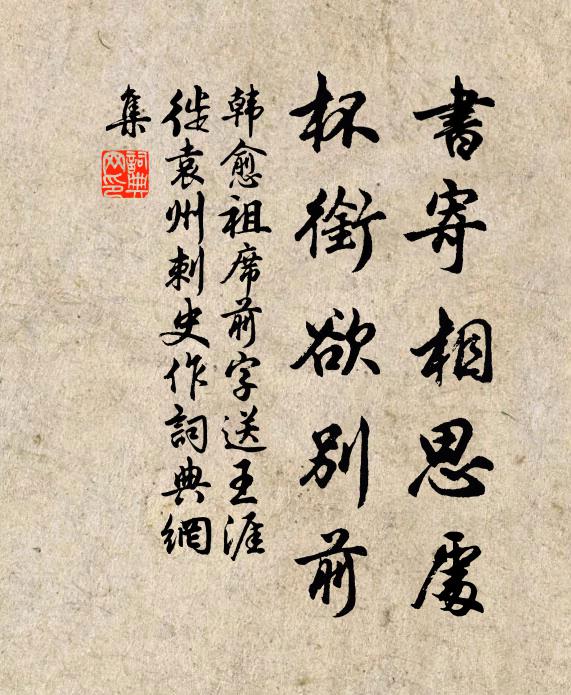 書寄相思處
杯銜欲別前
韩愈祖席前字送王涯
徙袁州刺史作詞典網
集
詞典
网印